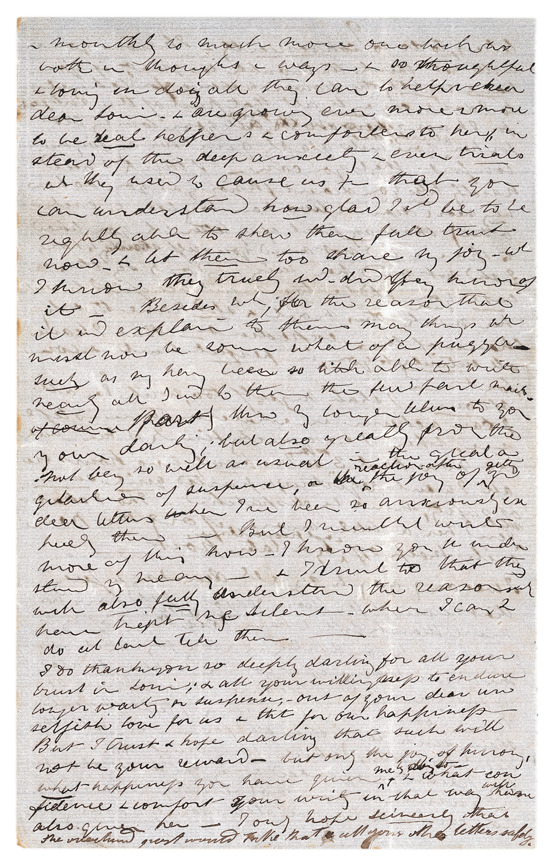 monthly so much more one with us
both in thoughts & ways - & so thoughtful
& loving in doing all they can to help & cheer
dear Loui - & are growing ever more & more
to be real helpers & comforters to her, in
stead of the deep anxiety & even trials
wh they used to cause us for that you
can understand how glad I'd be to be
rightly able to shew them full trust
now - & let them too share my joy - wh
I know they truly wd - did they know of
it - Besides wh, for the reason that
it wd explain to them many things wh
must now be some what of a puzzle
such as my having been so little able to write
nearly all I wd to them the few past
of course Part thro' my longer letters to you
your darling, but also greatly from the
not being so well as usual - the great a
of suspense, or the reaction after
the joy of getting yr
dear letters when I've been so anxiously ex
them - But I mustn't write
more of this now - I know you'll under
stand my meaning - & I trust to that they
will also fully understand the reasons wh
have kept me silent - when I can
do at last tell them -
I do thank you so deeply darling for all your
trust in Loui; & all your willingness to endure
longer waiting or suspense, out of your dear un
selfish love for us & tht for our happiness
But I trust & hope darling that such will
not be your reward - but only the joy of knowing
what happiness you have given me, & what con
fidence & comfort your writing in that way
also gives her - I only hope sincerely that
the overland guest all your other letters safely